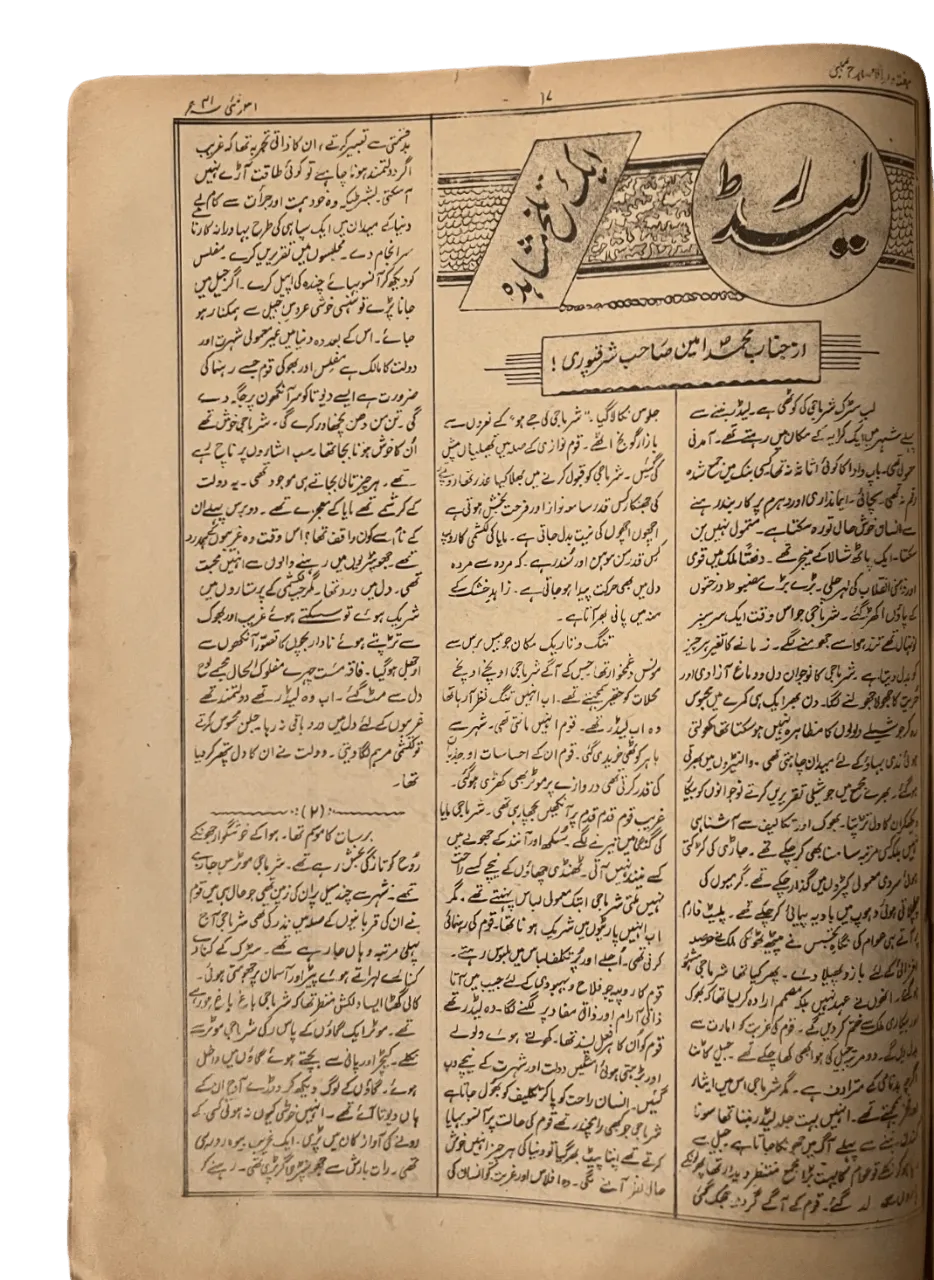 ہفتہ وار
۱۷
۳۱ مئی ۴۱ء
لیڈر
ایک تلخ مشاہدہ
از جناب محمد امین صاحب شرقپوری!
لب سڑک شرماجی کی کوٹھی ہے۔ لیڈر بننے سے
پہلے شہر میں ایک کرایہ کے مکان میں رہتے تھے۔ آمدنی
معمولی تھی۔ باپ دادا کا کوئی اثاثہ نہ تھا کسی بنک میں جمع شدہ
رقم نہ تھی۔ سچائی، ایمانداری اور دہرم پر کاربند رہنے
سے انسان خوش حال تو رہ سکتا ہے۔ متمول نہیں بن
سکتا۔ ایک پاٹھ شالا کے مینیجر تھے۔ دفعتاً ملک میں قومی
اور ذہنی انقلاب کی لہر چلی۔ بڑے بڑے مضبوط درختوں
کے پاؤں اکھڑ گئے۔ شرماجی جو اس وقت ایک سرسبز
نونہال تھے تیز ہوا سے جھومنے لگے۔ زمانے کا تغیر ہر چیز
کو بدل دیتا ہے شرماجی کا نوجوان دل و دماغ آزادی اور
حریت کا جھولا جھولنے لگا۔ دن بھر ایک ہی کمرے میں محبوس
رہ کر جوشیلے ولولوں کا مظاہرہ نہیں ہو سکتا تھا کھولتی
ہوئی ندی بہاؤ کے لئے میدان چاہتی تھی۔ والنٹیروں میں بھرتی
ہوگئے۔ بھرے مجمع میں جوشیلی تقریریں کرتے نوجوانوں کو
دیکھ کر ان کا دل تڑپتا۔ بھوک اور تکالیف سے آشنا ہی
نہیں بلکہ کئی مرتبہ سامنا بھی کر چکے تھے۔ جاڑے کی کڑکتی
ہوئی سردی معمولی کپڑوں میں گذار چکے تھے۔ گرمیوں کی
چلچلاتی ہوئی دہوپ میں بادیہ پیمائی کر چکے تھے۔ پلیٹ فارم
پر آتے ہی عوام کی نگاہ تجسس نے پیٹھ ٹھونکی ملک نے حوصلہ
افزائی کے لئے بازو پھیلا دئے۔ پھر کیا تھا شرماجی مشہور
ہوگئے۔ انھوں نے عہد نہیں بلکہ مصمم ارادہ کر لیا تھا کہ بھوک
اور بیکاری ملک سے ختم کر دیں گے۔ قوم کی غربت کو امارت سے
بدل دیں گے۔ دو مرتبہ جیل کی ہوا بھی کھا چکے تھے۔ جیل کاٹنا
اگرچہ بدنامی کے مترادف ہے۔ مگر شرماجی اس میں ایثار
سمجھتے تھے۔ انہیں بہت جلد لیڈر بننا تھا سونا
کندن بننے سے پہلے آگ میں جھونکا جاتا ہے جیل سے
کر نکلے تو عوام کا بہت بڑا مجمع منتظر دیدار تھا پھولوں کے
ہاروں سے لد گئے۔ قوم کے آگے گردن جھک گئی
جلوس نکالا گیا۔ "شرماجی کی جے ہو" کے نعروں سے
بازار گونج اٹھے۔ قوم نوازی کے صلہ میں تھیلیاں ملیں
گئیں۔ شرماجی کو قبول کرنے میں بھلا کیا عذر تھا روپے
کی جھنکار کس قدر سامعہ نواز اور فرحت بخش ہوتی ہے
اچھوں اچھوں کی نیت بدل جاتی ہے۔ مایا کی لکشمی کا روپ
کس قدر من موہن اور سندر ہے۔ کہ مردہ سے مردہ
دل میں بھی حرکت پیدا ہو جاتی ہے۔ زاہد خشک کے
منہ میں پانی بھر آتا ہے۔
تنگ و تاریک مکان جو بیس برس سے
مونس غمخوار تھا، جس کے آگے شرماجی اونچے اونچے
محلات کو حقیر سمجھتے تھے۔ اب انہیں تنگ نظر آ رہا تھا
وہ اب لیڈر تھے۔ قوم انہیں مانتی تھی۔ شہر سے
باہر کوٹھی خریدی گئی۔ قوم ان کے احساسات اور جذبۂ
کی قدر کرتی تھی دروازے پر موٹر بھی کھڑی ہوگئی۔
غریب قوم قدم قدم پر آنکھیں بچھا رہی تھی۔ شرماجی مایا
کی گنگا میں تیرنے لگے۔ سکھ اور آنند کے جھولے میں
کسے نیند نہیں آتی۔ ٹھنڈی چھاؤں کے نیچے کسے راحت
نہیں ملتی شرماجی اب تک معمولی لباس پہنتے تھے۔ مگر
اب انہیں پارٹیوں میں شریک ہونا تھا، قوم کی رہنمائی
کرنی تھی۔ اجلے اور پرتکلف لباس میں ملبوس رہتے۔
قوم کا روپیہ جو فلاح و بہبودی کے لئے جیب میں آتا
ذاتی آرام اور ذاتی مفاد پر لگنے لگا۔ وہ لیڈر تھے
قوم کو ان کا ہر فعل پسند تھا۔ کھولتے ہوئے ولولے
اور بڑھتی ہوئی امنگیں دولت اور شہرت کے نیچے دب
گئیں۔ انسان راحت کو پا کر تکلیف کو بھول جاتا ہے
شرماجی جو کبھی رامچندر تھے قوم کی حالت پر آنسو بہایا
کرتے تھے اپنا پیٹ بھر گیا تو دنیا کی ہر چیز انہیں خوش
حال نظر آنے لگی۔ وہ افلاس اور غربت کو انسان کی
بدبختی سے تعبیر کرتے، ان کا ذاتی تجربہ تھا کہ غریب
اگر دولتمند ہونا چاہے تو کوئی طاقت آڑے نہیں
آسکتی۔ بشرطیکہ وہ خود ہمت اور جرأت سے کام لے
دنیا کے میدان میں ایک سپاہی کی طرح بہادرانہ کارنا
سرانجام دے۔ مجلسوں میں تقریریں کرے۔ مفلس
کو دیکھ کر آنسو بہائے چندہ کی اپیل کرے۔ اگر جیل میں
جانا پڑے تو ہنسی خوشی عروس جیل سے ہمکنار ہو
جائے۔ اس کے بعد وہ دنیا میں غیر معمولی شہرت اور
دولت کا مالک ہے مفلس اور بھوکی قوم جسے رہنما کی
ضرورت ہے ایسے دیوتا کو سر آنکھوں پر جگہ دے
گی۔ تن من دھن نچھاور کرے گی، شرماجی خوش تھے
اُن کا خوش ہونا بجا تھا، سب اشاروں پر ناچ رہے
تھے۔ ہر چیز تالی بجاتے ہی موجود تھی۔ یہ دولت
کے کرشمے تھے مایا کے معجزے تھے۔ دو برس پہلے ان
کے نام سے کون واقف تھا؟ اس وقت وہ غریبوں کے ہمدرد
تھے۔ جھونپڑیوں میں رہنے والوں سے انہیں محبت
تھی۔ دل میں درد تھا۔ مگر جب لکشمی کے پرستاروں میں
شریک ہوئے تو سسکتے ہوئے غریب اور بھوک
سے تڑپتے ہوئے نادار بچوں کا تصور آنکھوں سے
اوجھل ہوگیا۔ فاقہ مست چہرے مفلوک الحال مجسمے لوح
دل سے مٹ گئے۔ اب وہ لیڈر تھے دولتمند تھے
غریبوں کے لئے دل میں درد باقی نہ رہا۔ جلن محسوس کرتے
تو لکشمی مرہم لگا دیتی۔ دولت نے ان کا دل پتھر کر دیا
تھا۔
(۲)
برسات کا موسم تھا۔ ہوا کے خوشگوار جھونکے
روح کو تازگی بخش رہے تھے۔ شرماجی موٹر میں جا رہے
تھے۔ شہر سے چند میل پر ان کی زمین تھی جو حال ہی میں قوم
نے ان کی قربانیوں کے صلہ میں نذر کی تھی شرماجی آج
پہلی مرتبہ وہاں جا رہے تھے۔ سڑک کے کنارے
کنارے لہراتے ہوئے پیڑ اور آسمان پر جھومتی ہوئی
کالی گھٹا ایسا دلکش منظر تھا کہ شرماجی باغ باغ ہو رہے
تھے۔ موٹر ایک گاؤں کے پاس رکی شرماجی موٹر سے
نکلے۔ کیچڑ اور پانی سے بچتے ہوئے گاؤں میں داخل
ہوئے۔ گاؤں کے لوگ دیکھ کر دوڑے آج ان کے
ہاں دیوتا آئے تھے۔ انہیں خوشی کیوں نہ ہوتی کسی کے
رونے کی آواز کان میں پڑی۔ ایک غریب بیوہ رو رہی
تھی۔ رات بارش سے چھپڑی گر پڑی تھی۔ رہنے کو